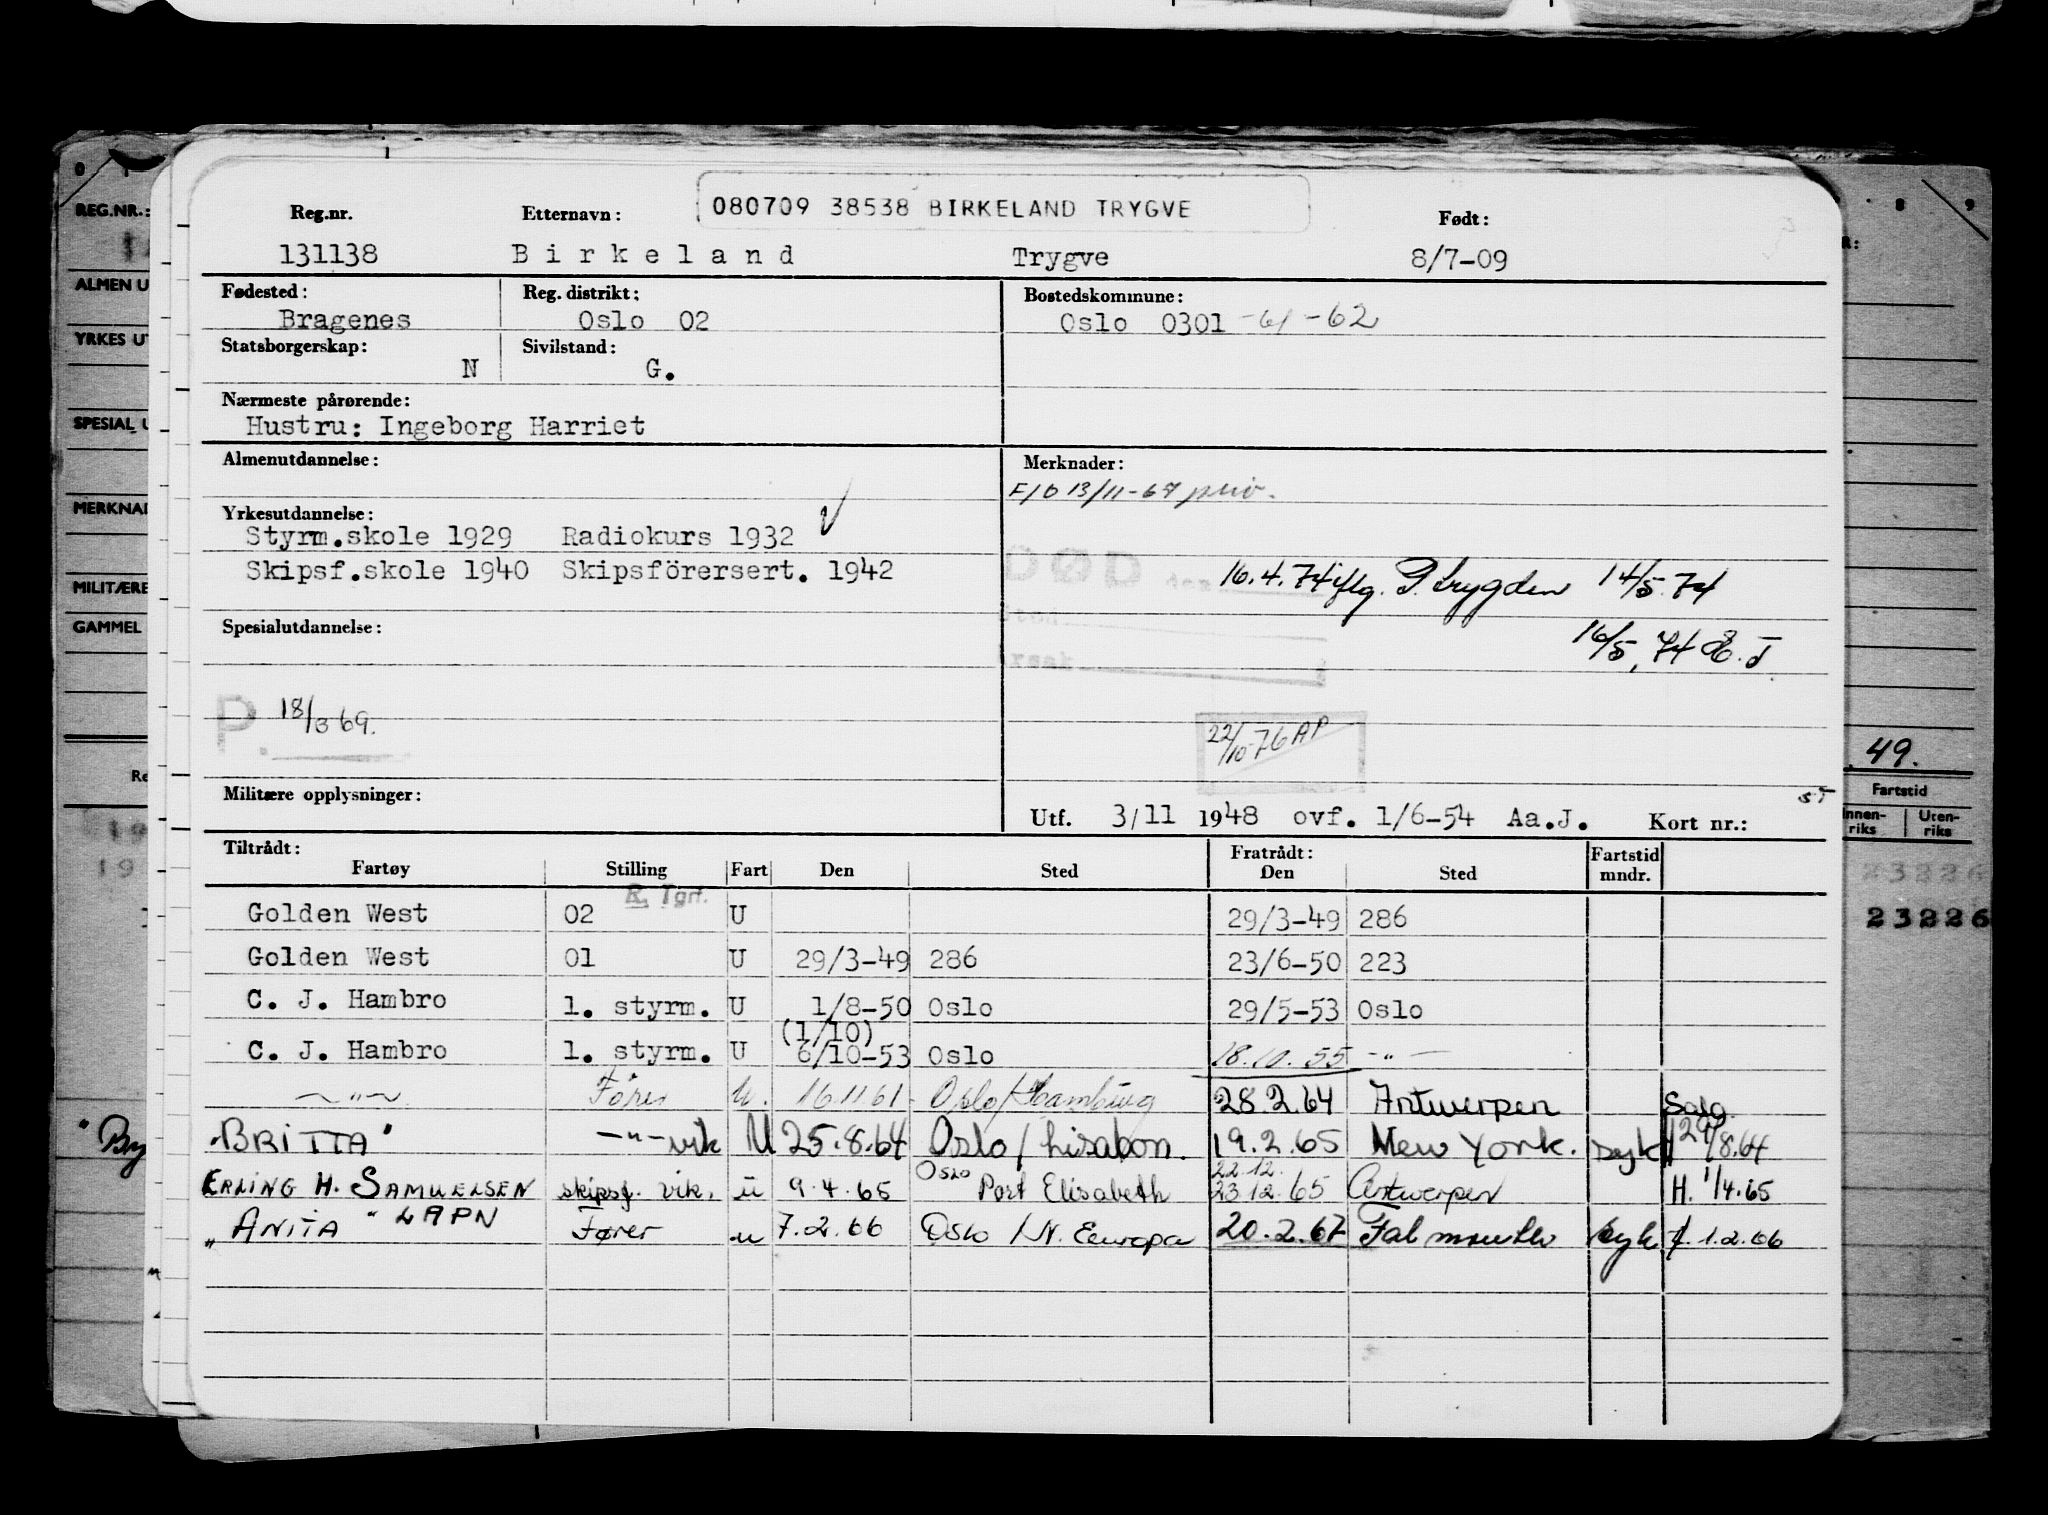 080709 38538 BIRKELAND TRYGVE
Reg.nr. Etternavn: Født:
131138 Birkeland Trygve 8/7-09
Fødested: Reg. distrikt: Bostedskommune:
Bragenes Oslo 02 Oslo 0301 -61 -62
Statsborgerskap: Sivilstand:
N G.
Nærmeste pårørende:
Hustru: Ingeborg Harriet
Almenutdannelse: Merknader:
F/O 13/11-67
Yrkesutdannelse:
Styrm.skole 1929 Radiokurs 1932
Skipsf.skole 1940 Skipsförersert. 1942
DØD den 16.4.74 iflg. P.trygden 14/5.74
Sted
Årsak
16/5.74
Spesialutdannelse:
P. 18/3 69.
22/10-76 AP
Militære opplysninger:
Utf. 3/11 1948 ovf. 1/6-54 Aa.J. Kort nr.:
Tiltrådt: Fratrådt: Fartstid
Fartøy Stilling Fart Den Sted Den Sted mndr.
R. Tgrf.
Golden West 02 U 29/3-49 286
Golden West 01 U 29/3-49 286 23/6-50 223
C. J. Hambro 1. styrm. U 1/8-50 Oslo 29/5-53 Oslo
(1/10)
C. J. Hambro 1. styrm. U 6/10-53 Oslo 18.10.55 -"-
-"- Fører U. 16.11 61 Oslo/Hamburg 28.2.64 Antwerpen Salg.
"BRITTA" -"- vik U 25.8.64 Oslo/Lisabon. 19.2.65 New York. Syk 29/8.64
Oslo 22.12.
ERLING H. SAMUELSEN skipsf. vik. u 9.4.65 Port Elisabeth 23.12.65 Antwerpen H. 1/4.65
"ANITA" LAPN Fører u 7.2.66 Oslo/N. Europa 20.2.67 Falmouth syk 1.2.66
REG.NR.:
ALMEN U
YRKES UT
SPESIAL U
MERKNAD
MILITÆRE
GAMMEL
49.
Fartstid
Innen-riks Uten-riks
23226
23226